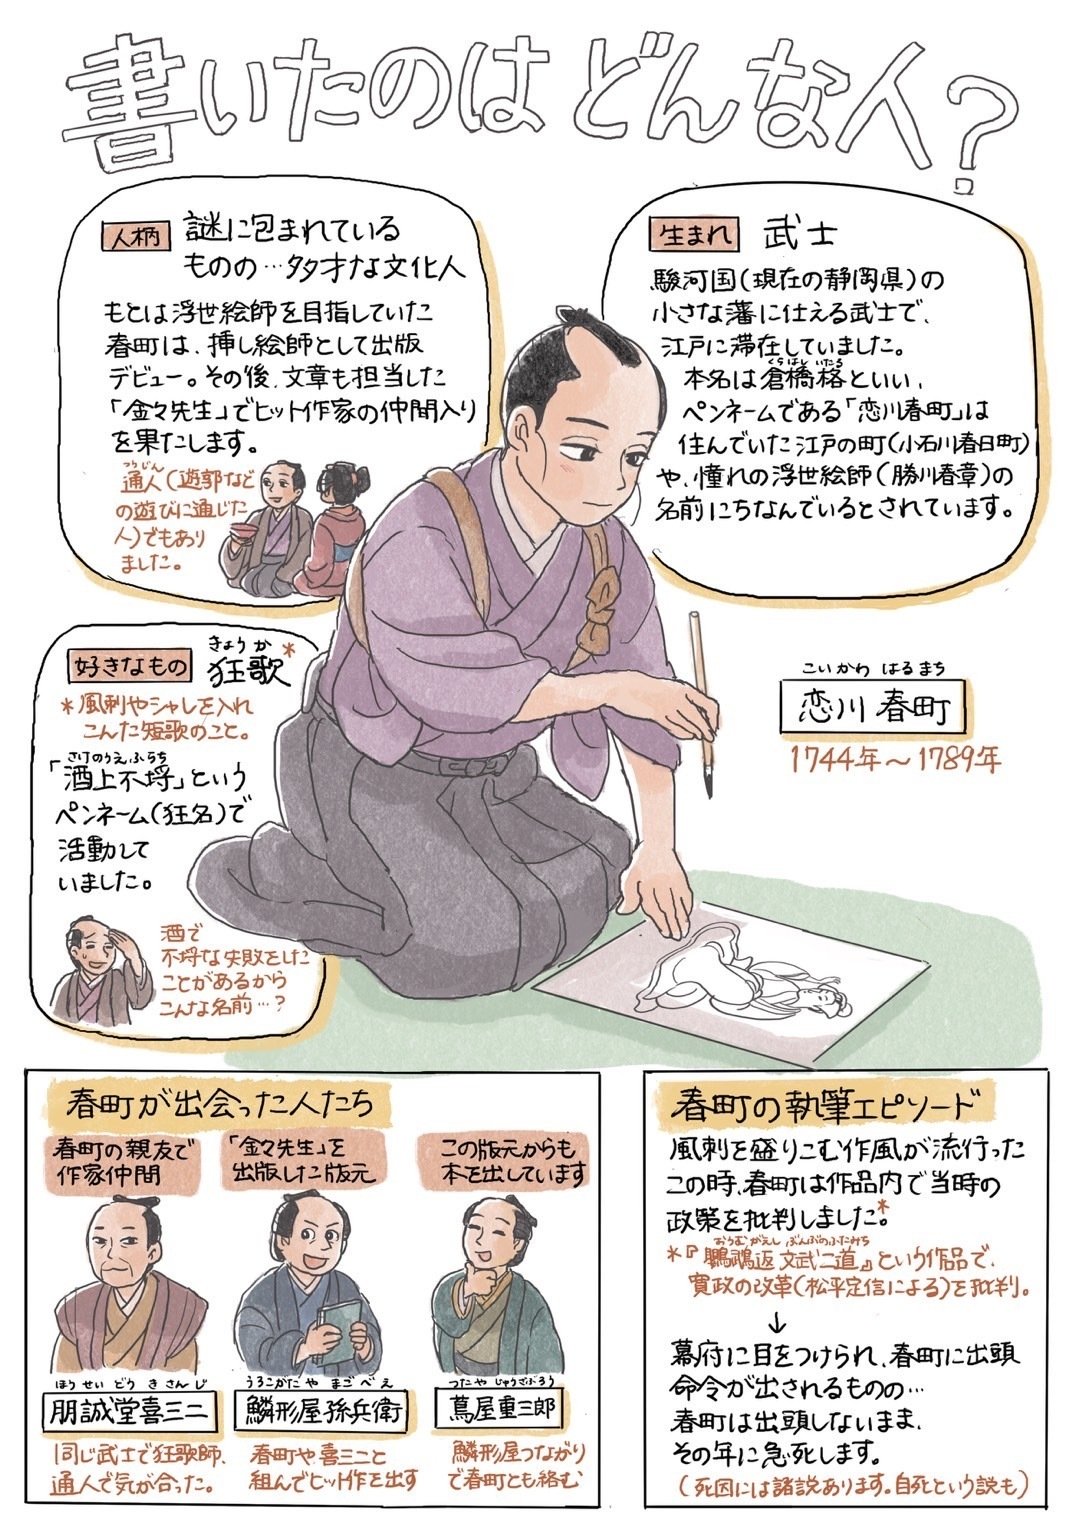 書いたのはどんな人?
人柄
謎に包まれている
ものの…多才な文化人
もとは浮世絵師を目指していた
春町は、挿し絵師として出版
デビュー。その後、文章も担当した
「金々先生」でヒット作家の仲間入り
を果たします。
つうじん
通人(遊郭など
の遊びに通じた
人)でもあり
ました。
生まれ
武士
駿河国(現在の静岡県)の
小さな藩に仕える武士で、
江戸に滞在していました。
くらはし いたる
本名は倉橋格といい、
ペンネームである「恋川春町」は
住んでいた江戸の町(小石川春日町)
や、憧れの浮世絵師(勝川春章)の
名前にちなんでいるとされています。
好きなもの
きょうか
狂歌*
*風刺やシャレを入れ
こんだ短歌のこと。
さけのうえふらち
「酒上不埒」という
ペンネーム(狂名)で
活動して
いました。
酒で
不埒な失敗をした
ことがあるから
こんな名前…?
こいかわ はるまち
恋川 春町
1744年〜1789年
春町が出会った人たち
春町の親友で
作家仲間
ほうせいどうきさんじ
朋誠堂喜三二
同じ武士で狂歌師、
通人で気が合った。
「金々先生」を
出版した版元
うろこがたやまごべえ
鱗形屋孫兵衛
春町や喜三二と
組んでヒット作を出す
この版元からも
本を出しています
つたやじゅうざぶろう
蔦屋重三郎
鱗形屋つながり
で春町とも絡む
春町の執筆エピソード
風刺を盛りこむ作風が流行った
この時、春町は作品内で当時の
政策を批判しました。*
おうむがえしぶんぶのふたみち
*『鸚鵡返文武二道』という作品で、
寛政の改革(松平定信による)を批判。
↓
幕府に目をつけられ、春町に出頭
命令が出されるものの…
春町は出頭しないまま、
その年に急死します。
(死因には諸説あります。自死という説も)